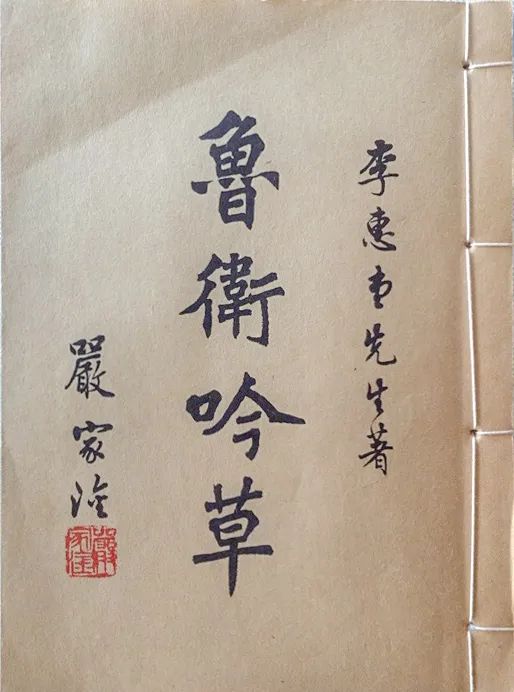 李惠堂先生著
魯衛吟草
嚴家淦
嚴家淦